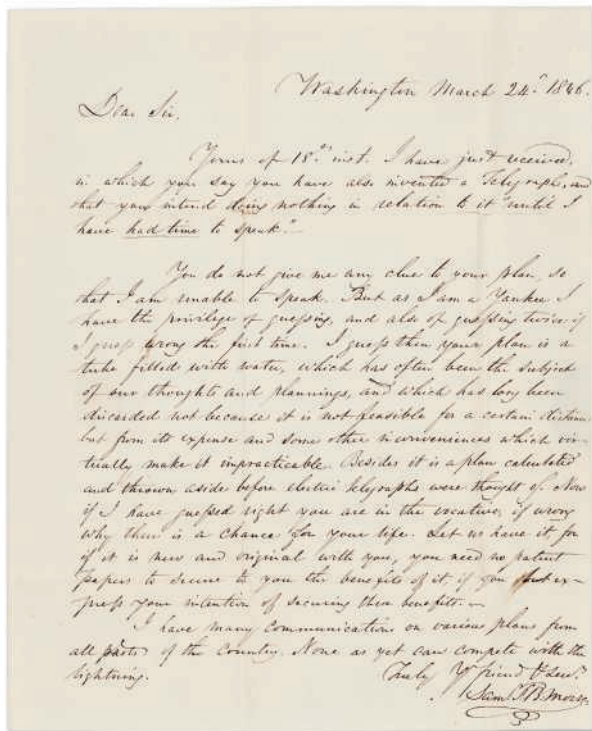 Washington March 24th 1846.
Dear Sir,
Yours of 18th inst. I have just received,
in which you say you have also invented a Telegraph, and
that you intend doing nothing in relation to it "until I
have had time to speak."
You do not give me any clue to your plan, so
that I am unable to speak. But as I am a Yankee I
have the privilege of guessing, and also of guessing twice if
I guess wrong the first time. I guess then your plan is a
tube filled with water, which has often been the subject
of our thoughts and plannings, and which has long been
discarded not because it is not feasible for a certain distance
but from its expense and some other inconveniences which vir-
tually make it impracticable. Besides it is a plan calculated
and thrown aside before electric telegraphs were thought of. Now
if I have guessed right you are in the vocative, if wrong
why there is a chance for your life. Let us have it for
if it is new and original with you, you need no patent
papers to secure to you the benefits of it, if you but ex-
press your intention of securing these benefits.—
I have many communications on various plans from
all parts of the Country. None as yet can compete with the
lightning.
Truly Yr friend & Servt
Saml F. B. Morse